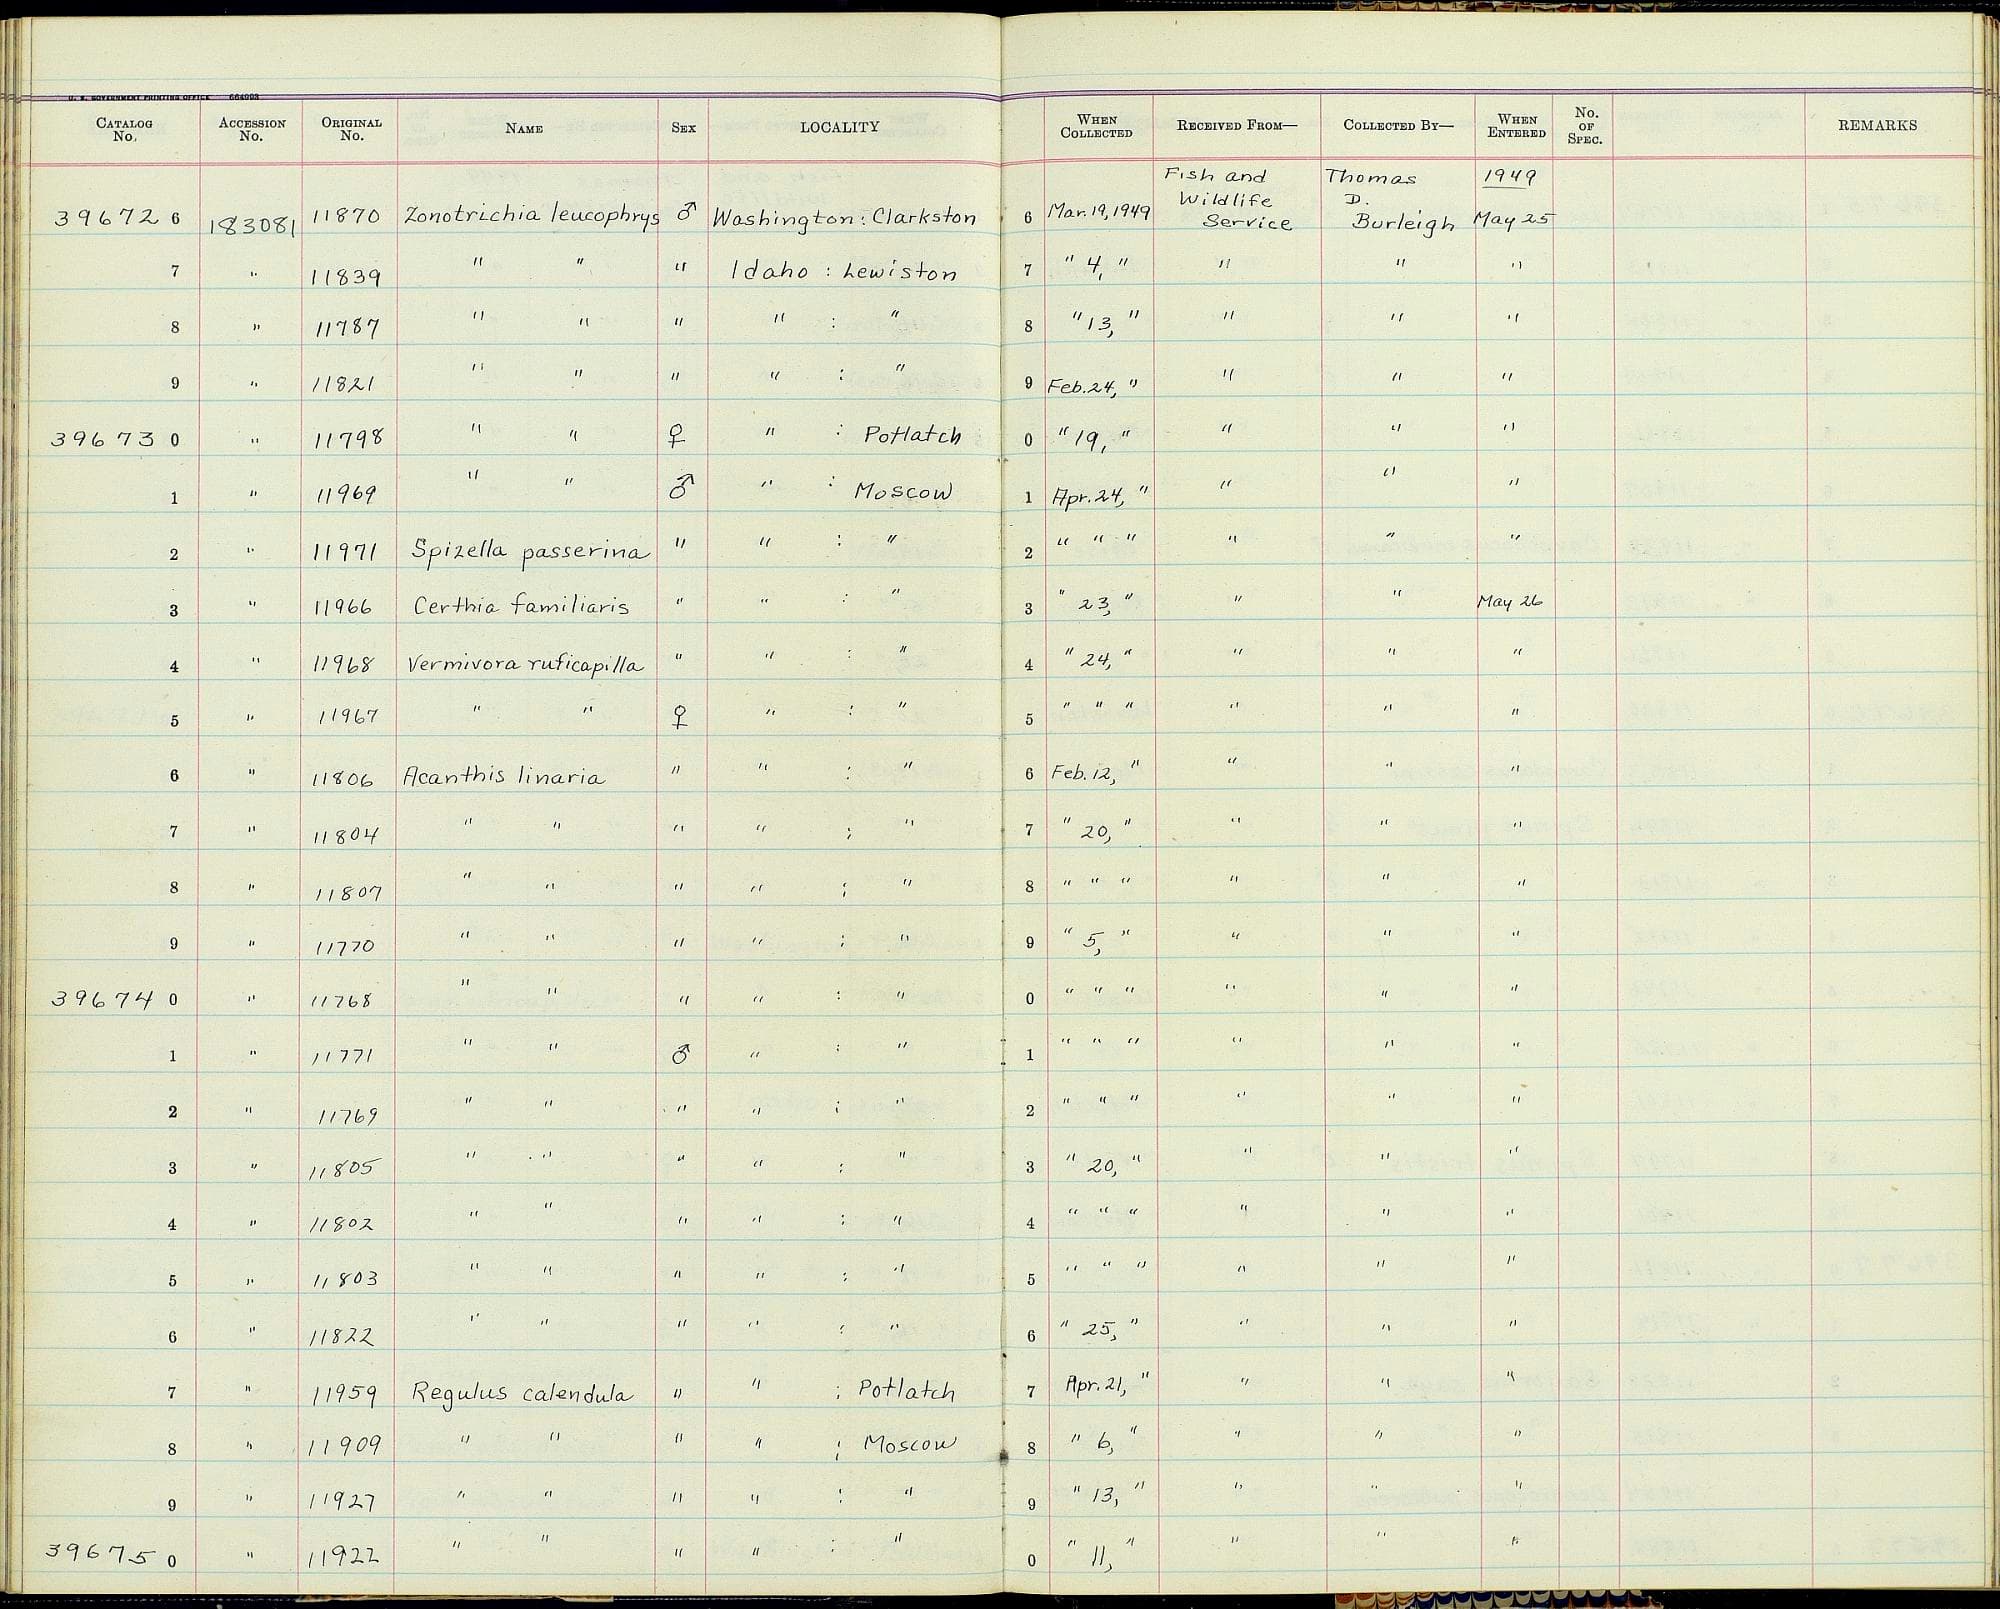 U. S. GOVERNMENT PRINTING OFFICE 664993
CATALOG No. ACCESSION No. ORIGINAL No. NAME SEX LOCALITY WHEN COLLECTED RECEIVED FROM— COLLECTED BY— WHEN ENTERED No. OF SPEC. REMARKS
39672 6 183081 11870 Zonotrichia leucophrys ♂ Washington : Clarkston 6 Mar. 19, 1949 Fish and Wildlife Service Thomas D. Burleigh 1949 May 25
7 " 11839 " " " Idaho : Lewiston 7 " 4, " " " "
8 " 11787 " " " " : " 8 " 13, " " " "
9 " 11821 " " " " : " 9 Feb. 24, " " " "
39673 0 " 11798 " " ♀ " : Potlatch 0 " 19, " " " "
1 " 11969 " " ♂ " : Moscow 1 Apr. 24, " " " "
2 " 11971 Spizella passerina " " : " 2 " " " " " "
3 " 11966 Certhia familiaris " " : " 3 " 23, " " " May 26
4 " 11968 Vermivora ruficapilla " " : " 4 " 24, " " " "
5 " 11967 " " ♀ " : " 5 " " " " " "
6 " 11806 Acanthis linaria " " : " 6 Feb. 12, " " " "
7 " 11804 " " " " : " 7 " 20, " " " "
8 " 11807 " " " " : " 8 " " " " " "
9 " 11770 " " " " : " 9 " 5, " " " "
39674 0 " 11768 " " " " : " 0 " " " " " "
1 " 11771 " " ♂ " : " 1 " " " " " "
2 " 11769 " " " " : " 2 " " " " " "
3 " 11805 " " " " : " 3 " 20, " " " "
4 " 11802 " " " " : " 4 " " " " " "
5 " 11803 " " " " : " 5 " " " " " "
6 " 11822 " " " " : " 6 " 25, " " " "
7 " 11959 Regulus calendula " " : Potlatch 7 Apr. 21, " " " "
8 " 11909 " " " " : Moscow 8 " 6, " " " "
9 " 11927 " " " " : " 9 " 13, " " " "
39675 0 " 11922 " " " " : " 0 " 11, " " " "